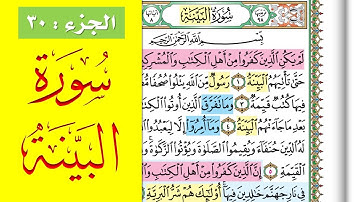 الجزء : ٣٠
سُورَة
البَيّنَة
سُورَةُ البَيِّنَةِ
بِسْمِ اللَّهِ الرَّحْمَٰنِ الرَّحِيمِ
لَمْ يَكُنِ الَّذِينَ كَفَرُوا مِنْ أَهْلِ الْكِتَابِ وَالْمُشْرِكِينَ
حَتَّىٰ تَأْتِيَهُمُ الْبَيِّنَةُ ۝١ رَسُولٌ مِنَ اللَّهِ يَتْلُو صُحُفًا
فِيهَا كُتُبٌ قَيِّمَةٌ ۝٣ وَمَا تَفَرَّقَ الَّذِينَ أُوتُوا الْكِتَابَ
بَعْدِ مَا جَاءَتْهُمُ الْبَيِّنَةُ ۝٤ وَمَا أُمِرُوا إِلَّا لِيَعْبُدُوا
لَهُ الدِّينَ حُنَفَاءَ وَيُقِيمُوا الصَّلَاةَ وَيُؤْتُوا الزَّكَاةَ
الْقَيِّمَةِ ۝٥ إِنَّ الَّذِينَ كَفَرُوا مِنْ أَهْلِ الْكِتَابِ وَا
فِي نَارِ جَهَنَّمَ خَالِدِينَ فِيهَا أُولَٰئِكَ هُمْ شَرُّ الْبَرِيَّةِ